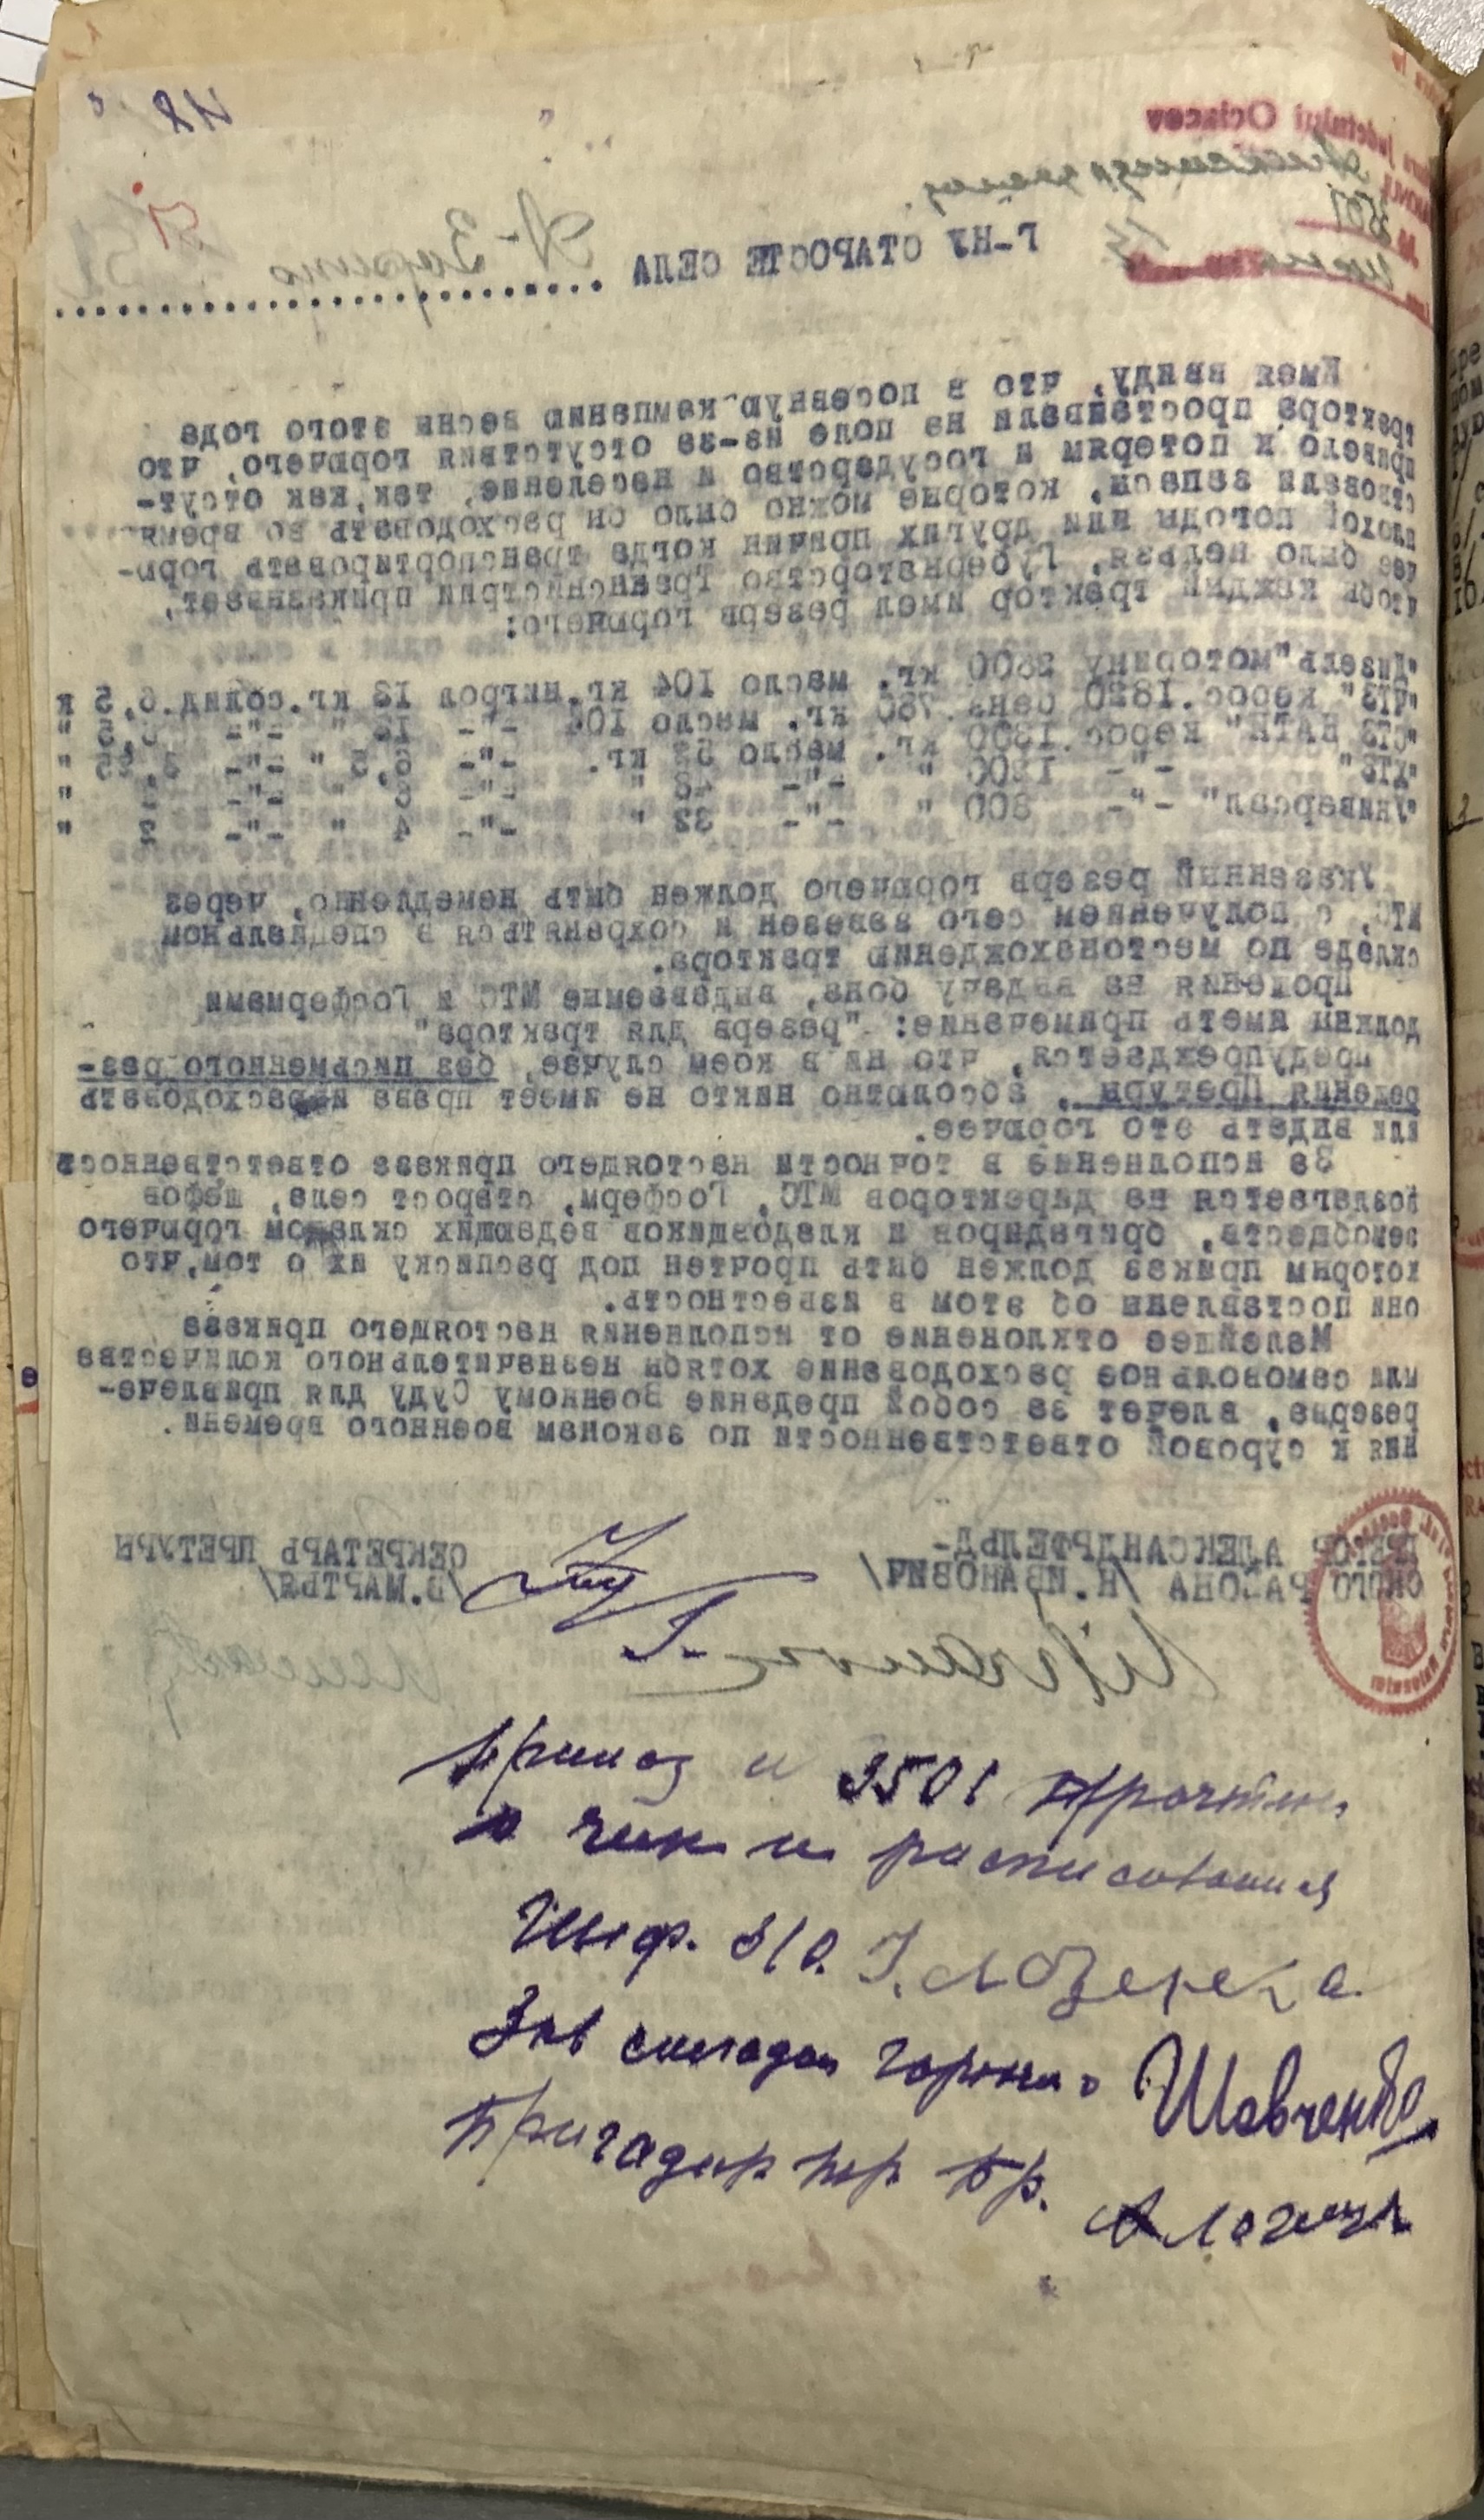 48
Prefectura Judetului Oceacov
3501
Г-НУ СТАРОСТЕ СЕЛА
Имея ввиду, что в посевную кампанию весны этого года
трактора простаивали на поле из-за отсутствия горючего, что
привело к потерям и государство и население, так,как отсут-
ствовали запасы, которые можно было бы расходовать во время
плохой погоды или других причин когда транспортировать горю-
чее было нельзя. Губернаторство Транснистрии приказывает,
чтобы каждый трактор имел резерв горючего:
"Дизель"моторину 2600 кг. масло 104 кг.нигрол 13 кг.солид.6,5 к
"ЧТЗ" керос.1820 бенз.780 кг. масло 104 -"- 13 " -"- 6,5 "
"СТЗ НАТИ" керос.1300 кг. масло 52 кг. -"- 6,5 " -"- 3,25 "
"ХТЗ" -"- 1200 " -"- 48 " -"- 6 " -"- 3 "
"Универсал" -"- 800 " -"- 32 " -"- 4 " -"- 2 "
Указенный резерв горючего должен быть немедленно, через
МТС, с получением сего завезен и сохраняться в специальном
складе по местонахождению трактора.
Прошения на выдачу бона, выдаваемые МТС и Госфермами
должны иметь примечание: "резерв для трактора"
предупреждается, что ни в коем случае, без письменного раз-
решения Претуры, абсолютно никто не имеет права израсходовать
или выдать это горючее.
За исполнение в точности настоящего приказа ответственность
возлагается на директоров МТС, Госферм, старост села, шефов
земобществ, бригадиров и кладовщиков ведающих складом горючего
которым приказ должен быть прочтен под расписку их о том,что
они поставлены об этом в известность.
Малейшее отклонение от исполнения настоящего приказа
или самовольное расходование хотябы незначительного количества
резерва, влечет за собой предание Военному Суду для привлече-
ния к суровой ответственности по законам военного времени.
ПРЕТОР АЛЕКСАНДРФЕЛЬД-
СКОГО РАЙОНА /Н.ИВАНОВИЧ/
СЕКРЕТАРЬ ПРЕТУРЫ
/В.МАРТЬЯ/
Приказ и 3501
и расписования
Шеф. З/О.
Зав складом горюч. Шевченко
Бригадир тр бр.